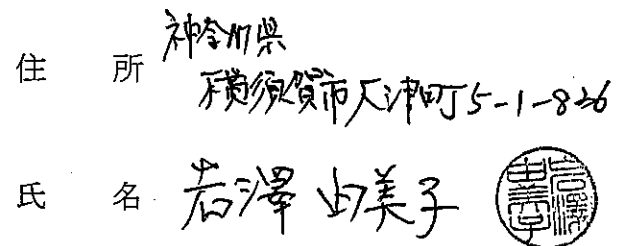 住所 神奈川県
横須賀市大津町5-1-826
氏名 岩澤由美子